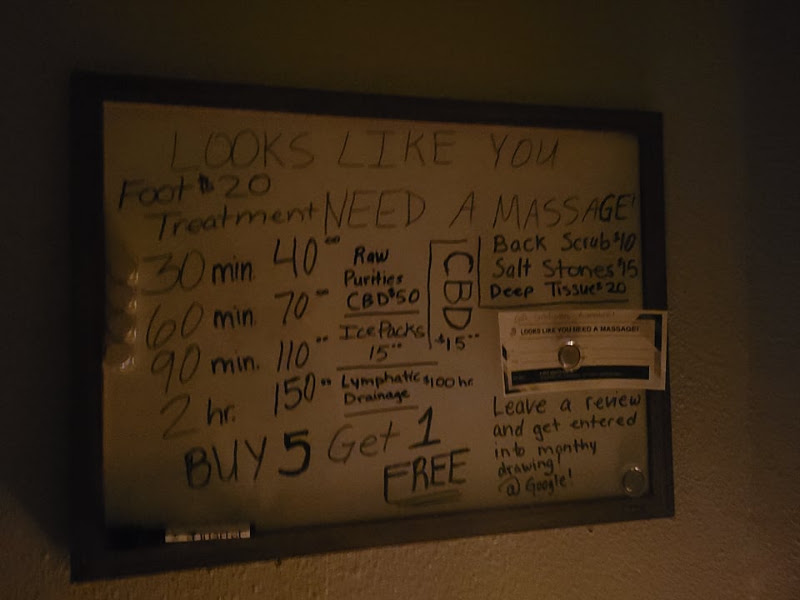 LOOKS LIKE YOU
NEED A MASSAGE!
Foot $20
Treatment
30 min. 40⁰⁰
60 min. 70⁰⁰
90 min. 110⁰⁰
2 hr. 150⁰⁰
BUY 5 Get 1
FREE
Raw
Purities
CBD $50
Ice Packs
15⁰⁰
Lymphatic $100 hr.
Drainage
CBD
$15⁰⁰
Back Scrub $10
Salt Stones $15
Deep Tissue $20
LOOKS LIKE YOU NEED A MASSAGE!
Leave a review
and get entered
into monthy
drawing!
@ Google!